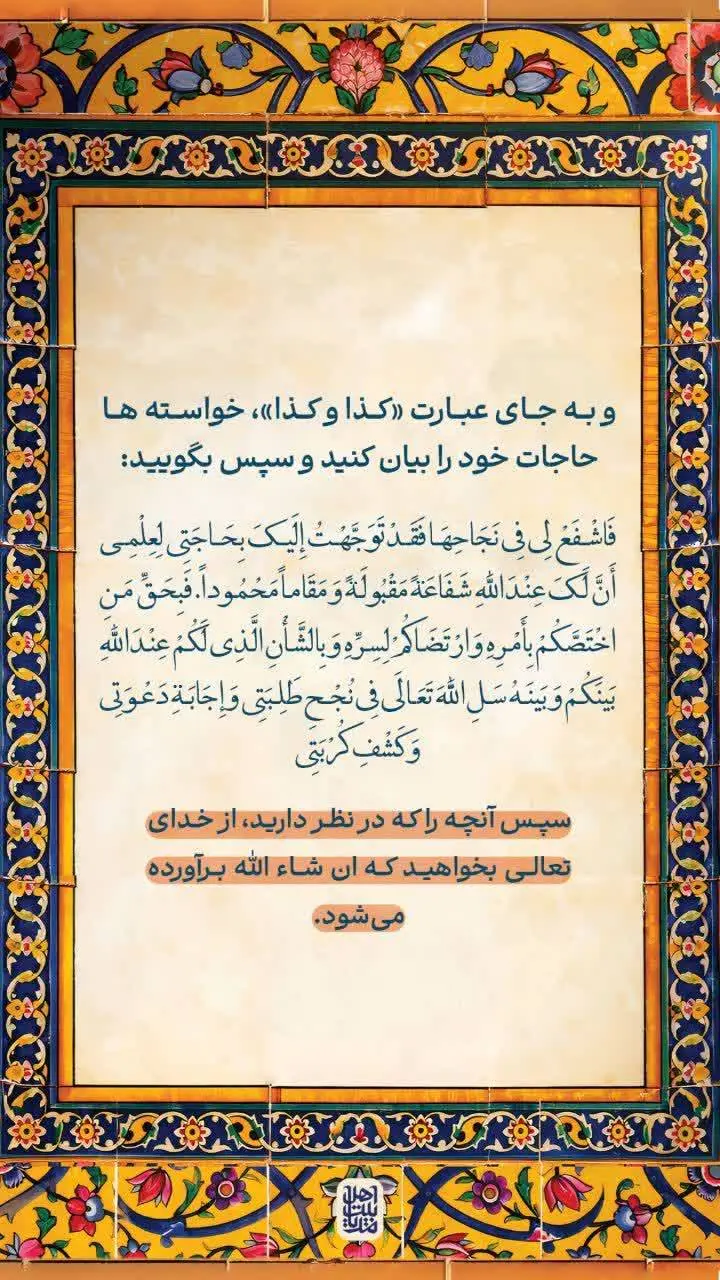 و به جای عبارت «کذا و کذا»، خواسته ها
حاجات خود را بیان کنید و سپس بگویید:
فَاشْفَعْ لِی فِی نَجَاحِهَا فَقَدْ تَوَجَّهْتُ إِلَیکَ بِحَاجَتِی لِعِلْمِی
أَنَّ لَکَ عِنْدَ اللَّهِ شَفَاعَةً مَقْبُولَةً وَ مَقَاماً مَحْمُوداً. فَبِحَقِّ مَنِ
اخْتَصَّکُمْ بِأَمْرِهِ وَ ارْتَضَاکُمْ لِسِرِّهِ وَ بِالشَّأْنِ الَّذِی لَکُمْ عِنْدَ اللَّهِ
بَینَکُمْ وَ بَینَهُ سَلِ اللَّهَ تَعَالَی فِی نُجْحِ طَلِبَتِی وَ إِجَابَةِ دَعْوَتِی
وَ کَشْفِ کُرْبَتِی
سپس آنچه را که در نظر دارید، از خدای
تعالی بخواهید که ان شاء الله برآورده
می‌شود.